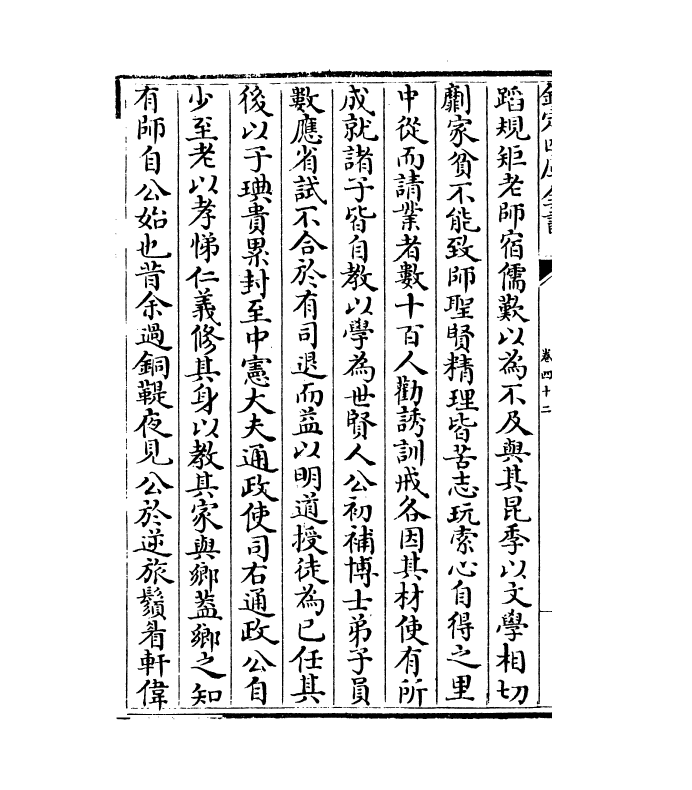 欽定四庫全書
卷四十二
蹈規矩老師宿儒歎以為不及與其昆季以文學相切
劘家貧不能致師聖賢精理皆苦志玩索心自得之里
中從而請業者數十百人勸誘訓戒各因其材使有所
成就諸子皆自教以學為世賢人公初補博士弟子員
數應省試不合於有司退而益以明道授徒為己任其
後以子璵貴累封至中憲大夫通政使司右通政公自
少至老以孝悌仁義修其身以教其家與鄉蓋鄉之知
有師自公始也昔余過銅鞮夜見公於逆旅鬚眉軒偉